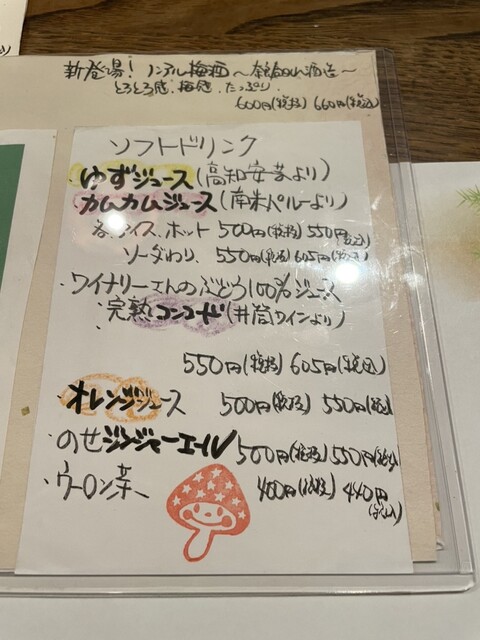 新登場！ノンアル梅酒
とろとろ感、梅感、たっぷり
600円(税抜) 660円(税込)
ソフトドリンク
・ゆずジュース(高知安芸より)
カムカムジュース(南米ペルーより)
各アイス、ホット 500円(税抜) 550円(税込)
ソーダわり、550円(税抜) 605円(税込)
・ワイナリーさんのぶどう100%ジュース
完熟コンコード(井筒ワインより)
550円(税抜) 605円(税込)
・オレンジジュース 500円(税抜) 550円(税込)
・のせジンジャーエール 500円(税抜) 550円(税込)
・ウーロン茶 400円(税抜) 440円(税込)